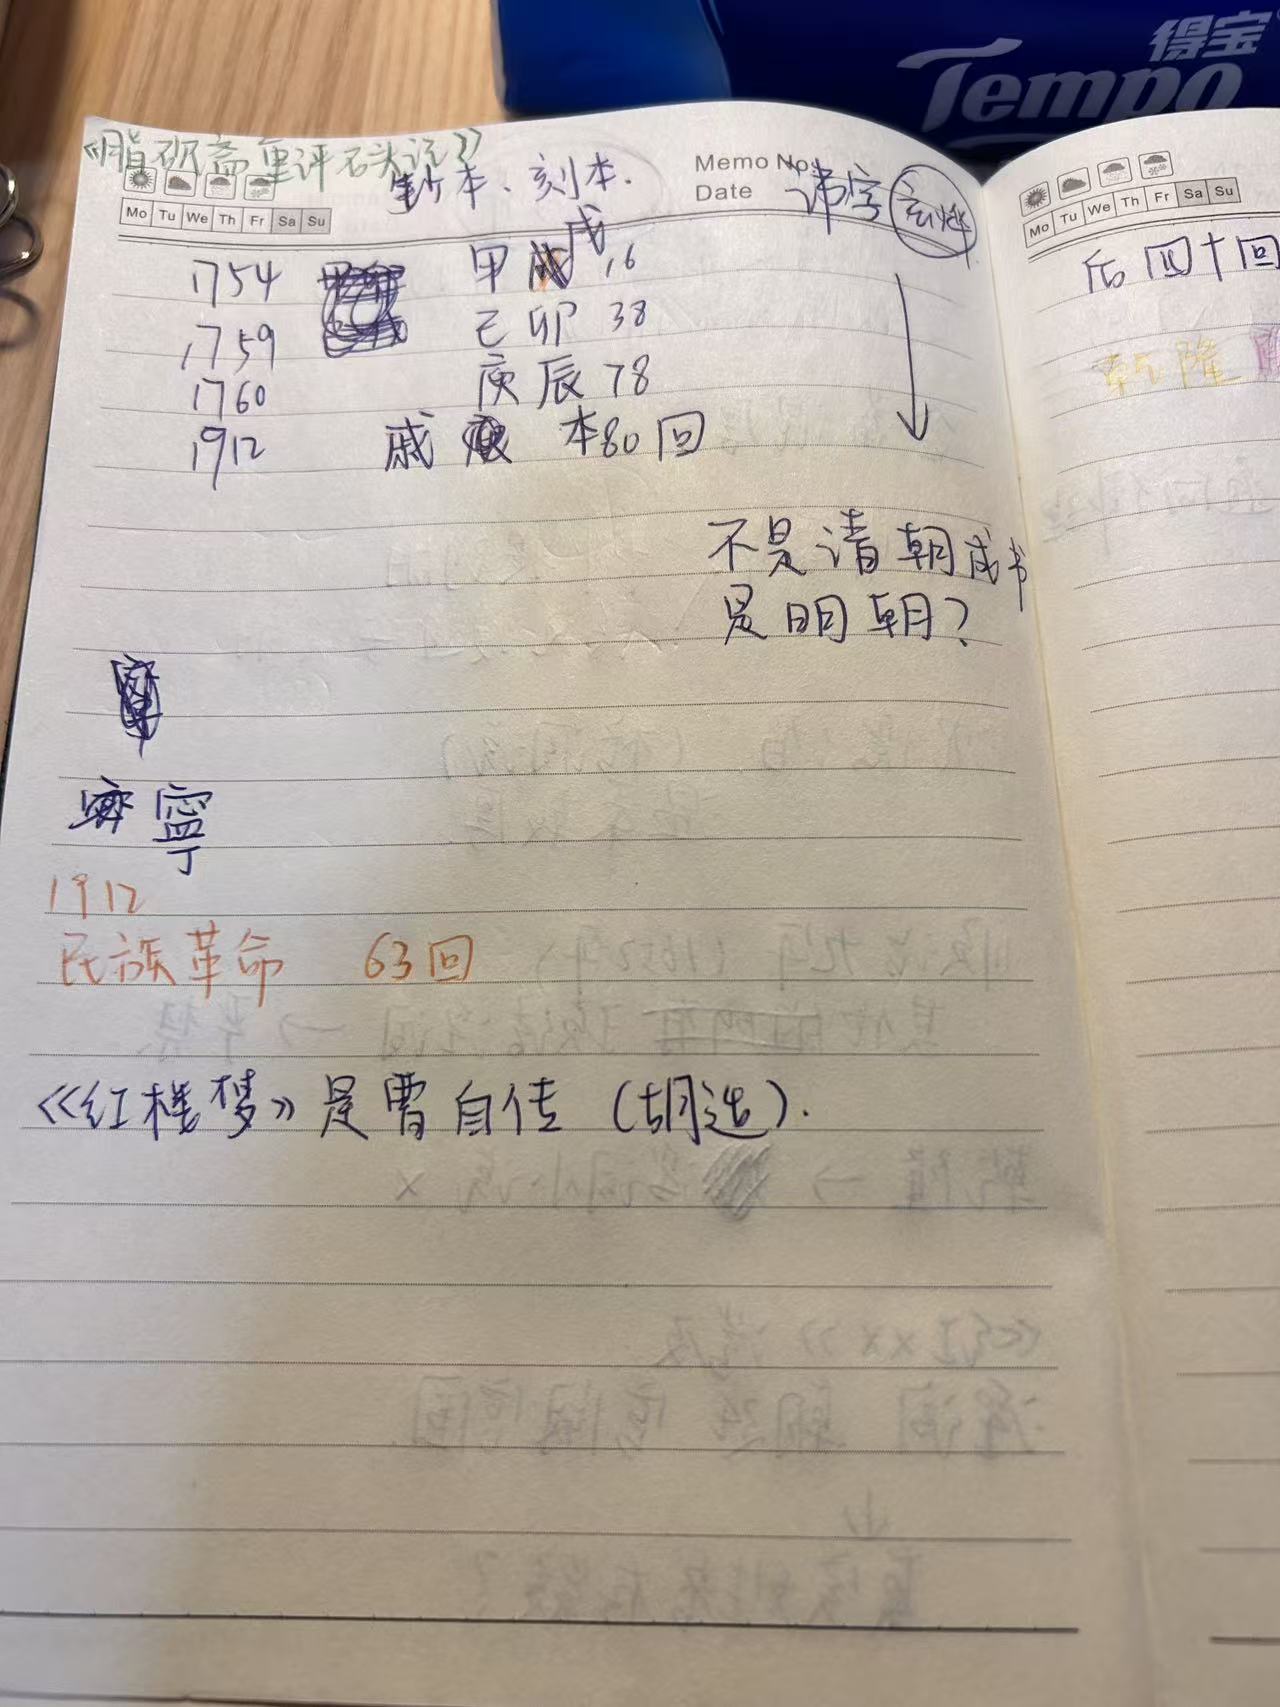 得宝
Tempo
《脂砚斋重评石头记》
钞本、刻本.
Memo No.
Date
讳字 玄烨
Mo Tu We Th Fr Sa Su
1754 甲戌 16
1759 己卯 38
1760 庚辰 78
1912 戚 本80回
不是清朝成书
是明朝?
寧
1912
民族革命 63回
《红楼梦》是曹自传(胡适).
Mo Tu We Th Fr Sa Su
后四十回
乾隆